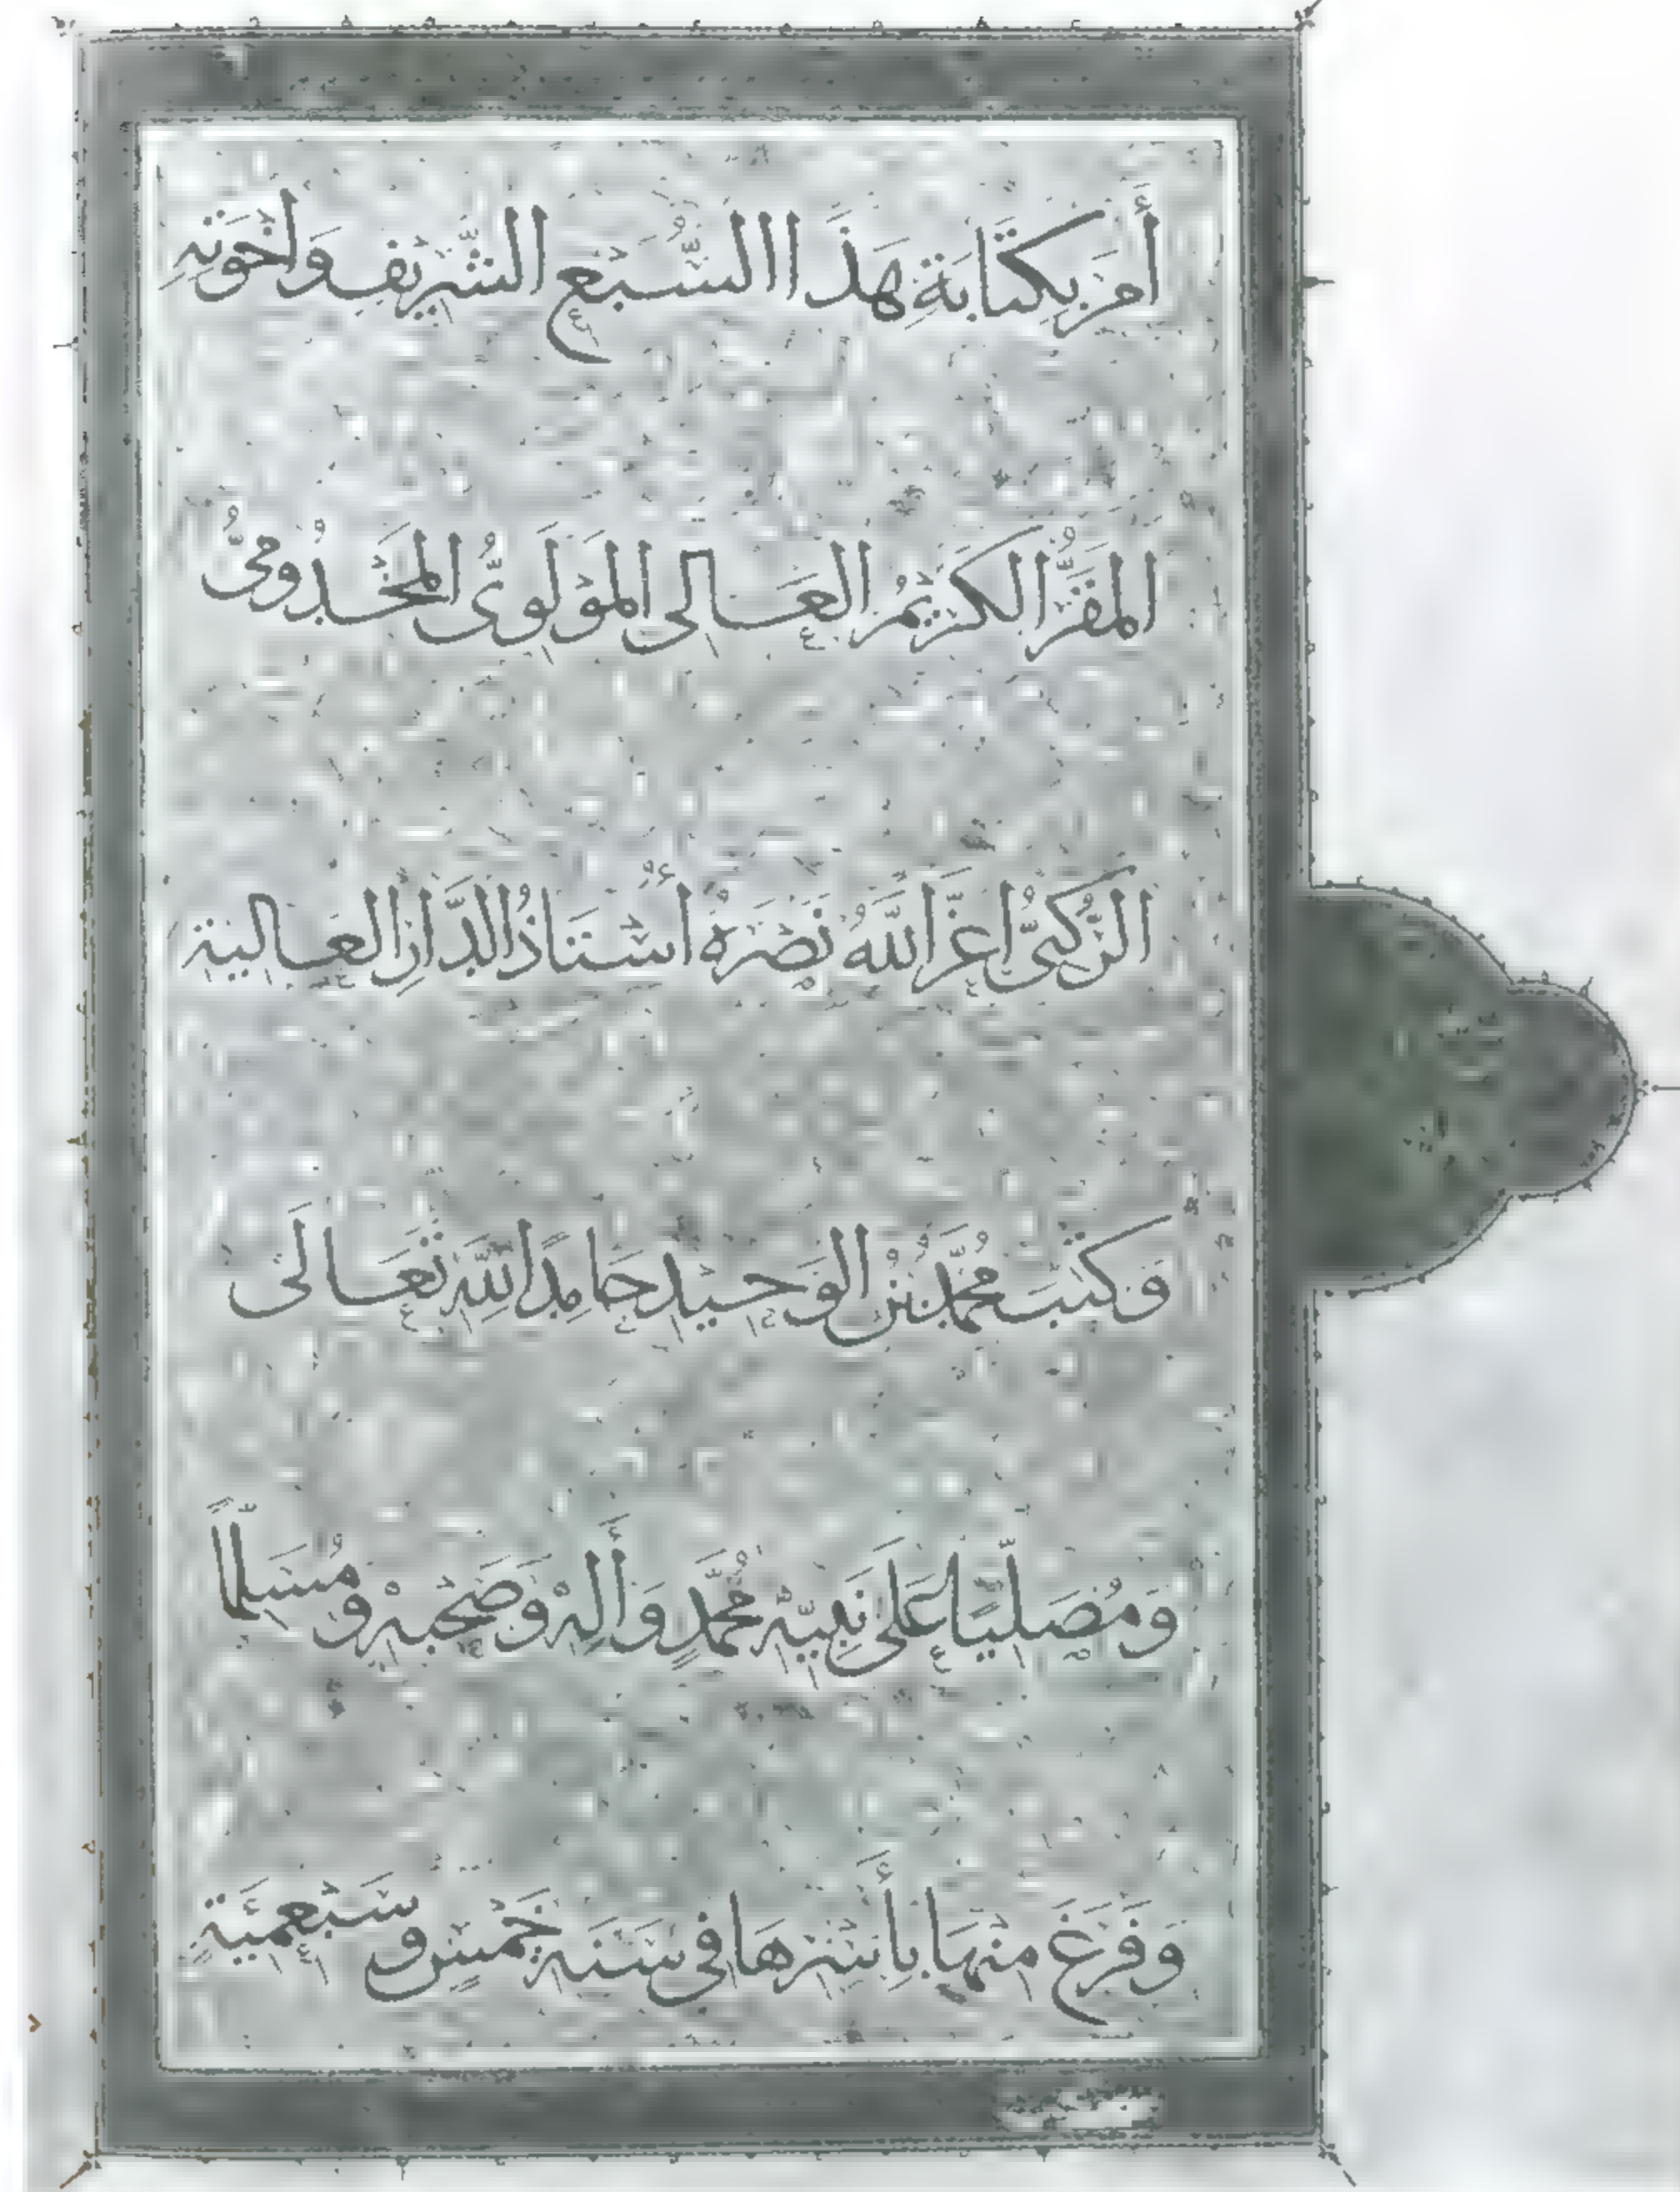 أَمَرَ بِكِتَابَةِ هَذَا السُّبْعِ الشَّرِيْفِ وَإخْوَتِهِ
المَقَرُّ الكَرِيْمُ العَالِى المَوْلَوِىُّ المَخْدُومِىُّ
الرُّكْنِىُّ اعَزَّ اللَّهُ نَصْرَهُ أُسْتَاذُ الدَّارِ العَالِيَةِ
وَكَتَبَ مُحَمَّدُ بْنُ الوَحِيْدِ حَامِدًا لِلَّهِ تَعَالَى
وَمُصَلِّيًا عَلَى نَبِيِّهِ مُحَمَّدٍ وَأَلِهْ وَصَحْبِهْ وَمُسَلِّمًا
وَفَرَغَ مِنْهَا بِأَسْرِهَا فِى سَنَةِ خَمْسٍ وَسَبْعِمِئَةٍ